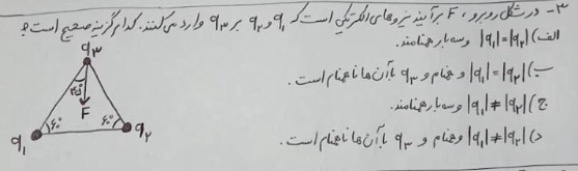 ۳- در شکل روبرو، F برآیند نیروهای الکتریکی است که q₁ و q₂ بر q₃ وارد می‌کنند. کدام گزینه صحیح است؟
الف) |q₁|=|q₂| و سه بار همنامند.
ب) |q₁|=|q₂| و همنام و q₃ با آن‌ها ناهمنام است.
ج) |q₁|≠|q₂| و سه بار همنامند.
د) |q₁|≠|q₂| و همنام و q₃ با آن‌ها ناهمنام است.
q₃
F
۶۰° ۶۰°
q₁ q₂